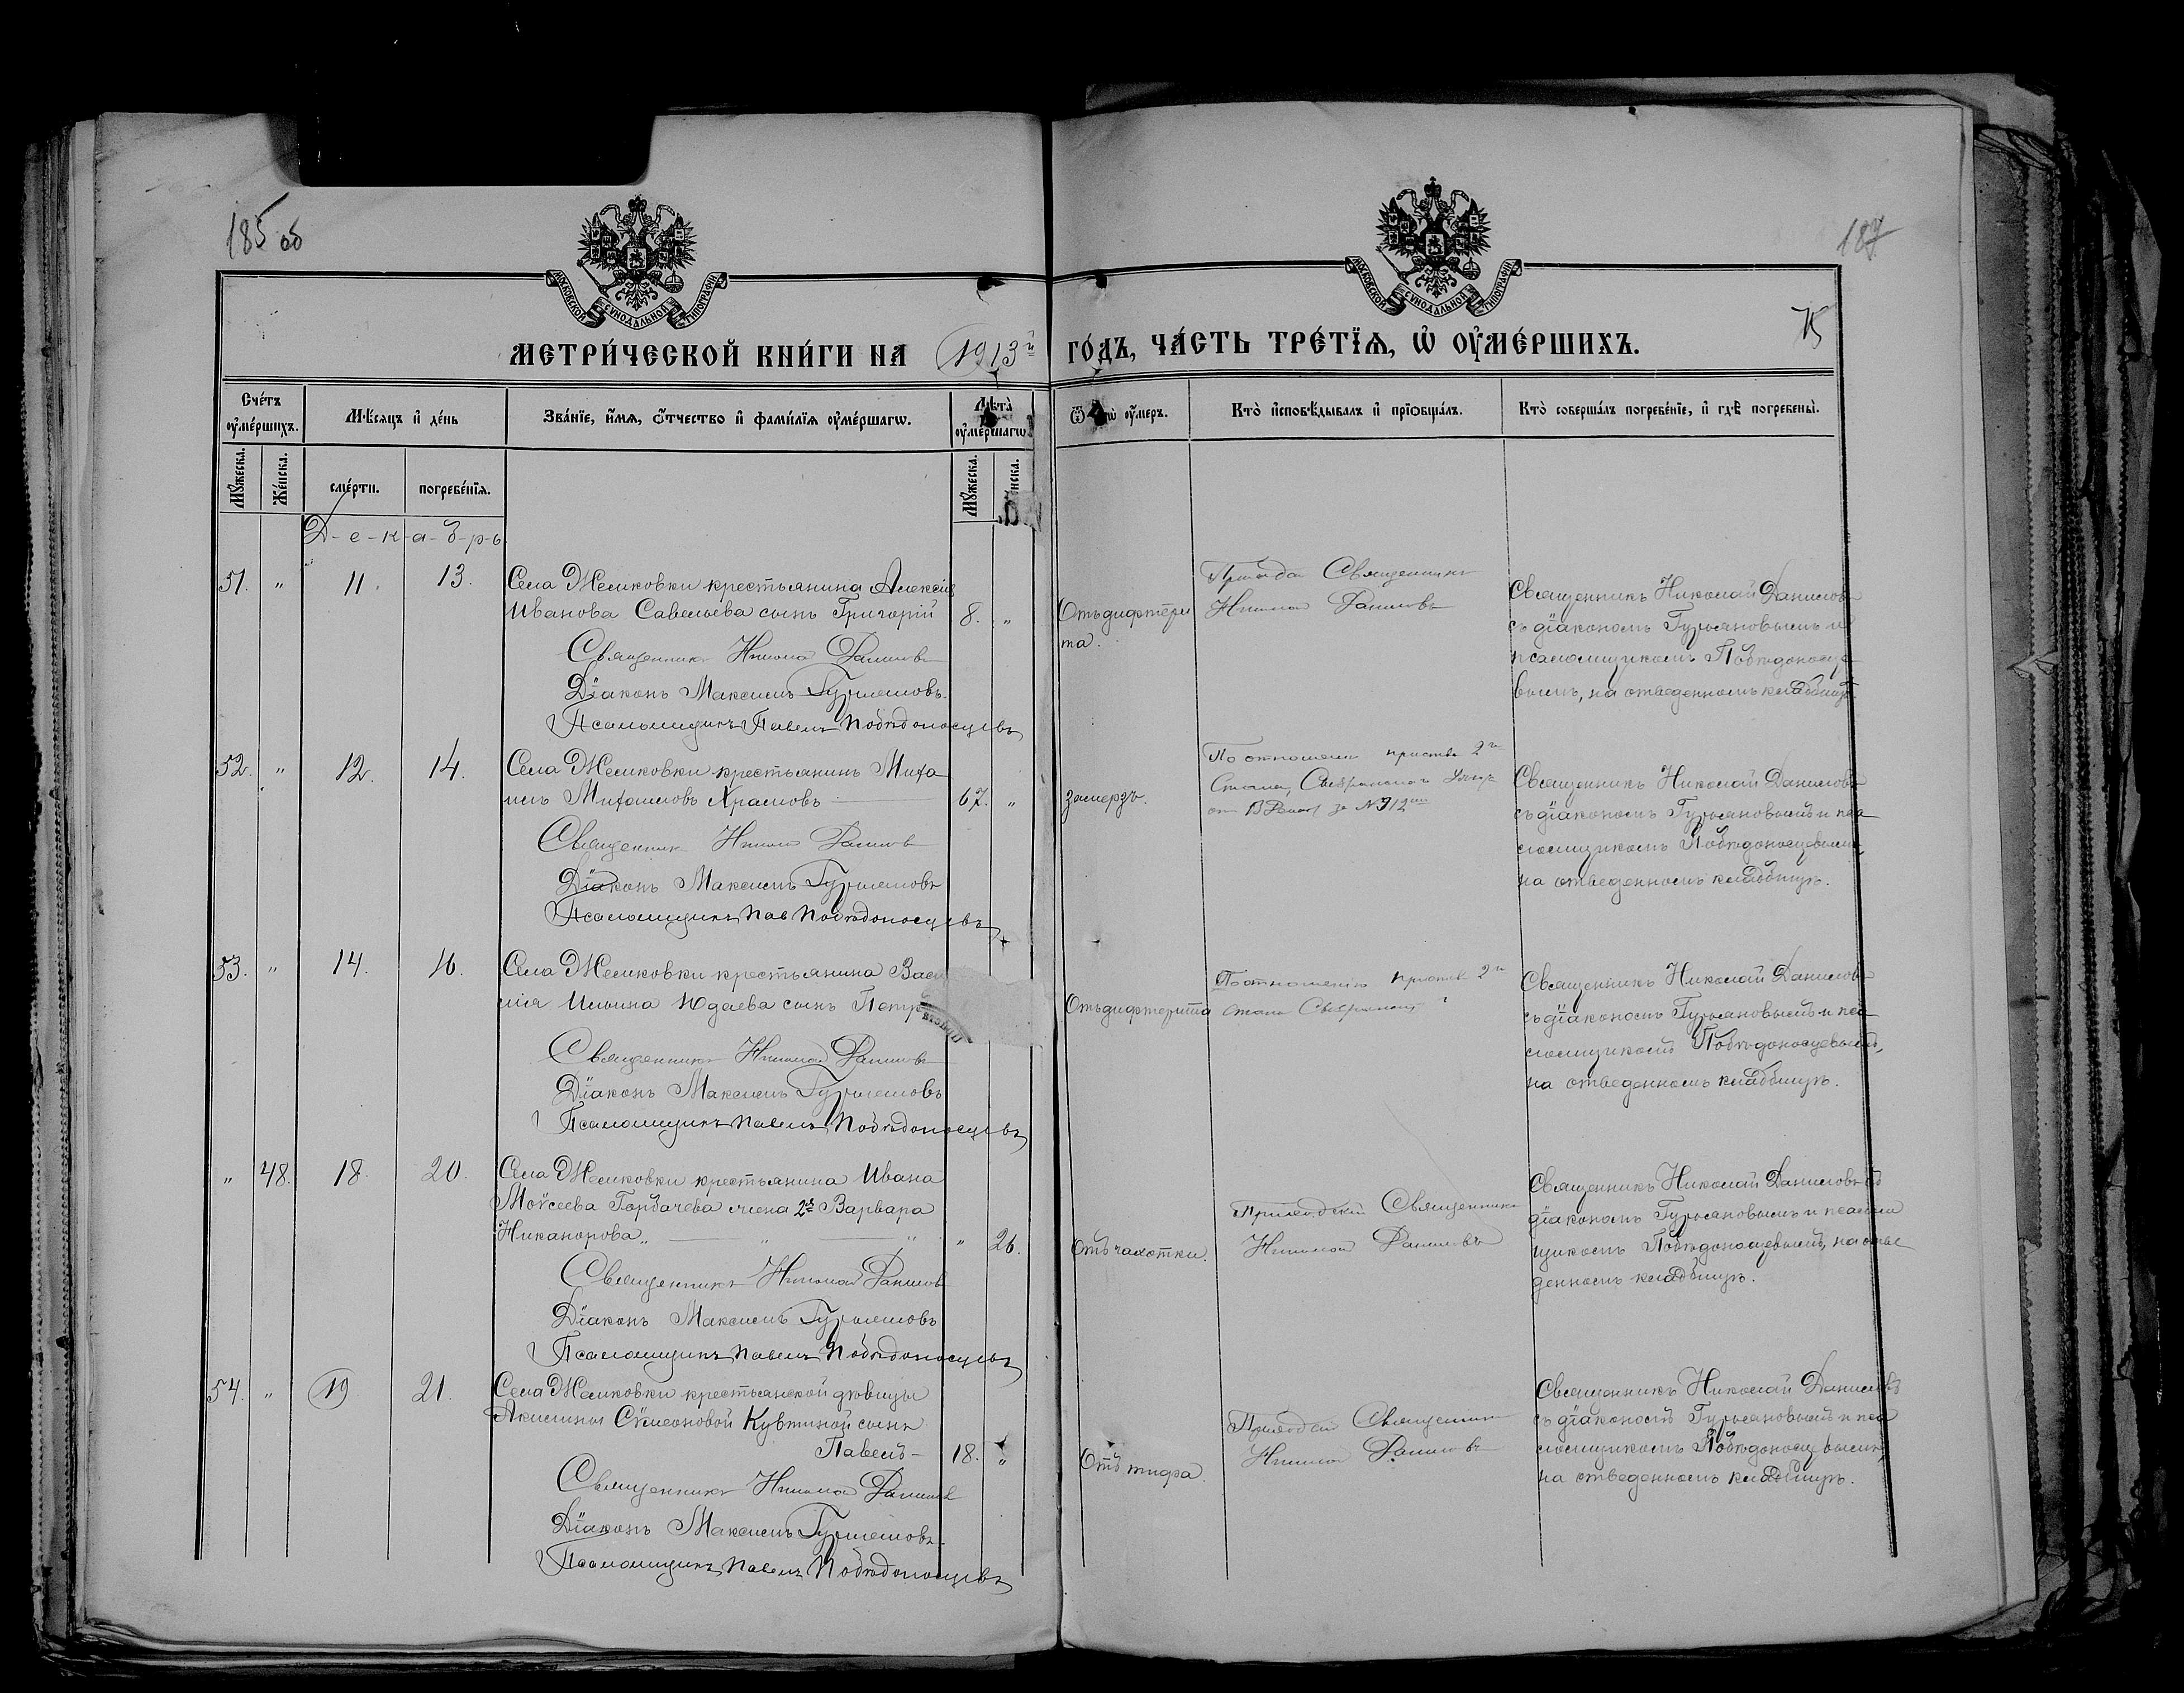 185 об
187
75
МОСКОВСКОЙ СѴНОДАЛЬНОЙ ТИПОГРАФІИ
МОСКОВСКОЙ СѴНОДАЛЬНОЙ ТИПОГРАФІИ
МЕТРИ́ЧЕСКОЙ КНИ́ГИ НА 1913й
ГО́ДЪ, ЧА́СТЬ ТРЕ́ТЇѦ, Ѡ҆ ОУ҆МЕ́РШИХЪ.
Сче́тъ оу҆ме́ршихъ.
Мѣ́сяцъ и҆ де́нь
Зва́нїе, и҆́мѧ, ѻ҆́тчество и҆ фами́лїѧ оу҆ме́ршагѡ.
Лѣта̀ оу҆ме́ршагѡ
оу҆́меръ.
Кто̀ и҆сповѣ́дывалъ и҆ прїѡбща́лъ.
Кто̀ соверша́лъ погребе́нїе, и҆ гдѣ̀ погребены̀.
Мꙋ́жеска.
Же́нска.
сме́рти.
погребе́нїѧ.
Мꙋ́жеска.
Д-е-к-а-б-р-ь
51. " 11. 13. Села Жемковки крестьянина Алексія
Иванова Савельева сынъ Григорій 8. "
Священникъ Николай Даниловъ
Діаконъ Максимъ Гурьяновъ
Псаломщикъ Павелъ Побѣдоносцевъ
Отъ дифтери
та.
Священникъ
Николай Даниловъ
Священникъ Николай Даниловъ
съ діакономъ Гурьяновымъ и
псаломщикомъ Побѣдоносце
вымъ, на отведенномъ кладбищѣ
52. " 12. 14. Села Жемковки крестьянинъ Миха
илъ Михаиловъ Храмовъ 67. "
Священникъ Николай Даниловъ
Діаконъ Максимъ Гурьяновъ
Псаломщикъ Пав Побѣдоносцевъ
замерзъ.
По отношенію пристава 2го
Стана,
за № 312
Священникъ Николай Даниловъ
съ діакономъ Гурьяновымъ и пса
ломщикомъ Побѣдоносцевымъ,
на отведенномъ кладбищѣ.
53. " 14. 16. Села Жемковки крестьянина Васи
лія Ильина Юдаева сынъ Петръ
Священникъ Николай Даниловъ
Діаконъ Максимъ Гурьяновъ
Псаломщикъ Павелъ Побѣдоносцевъ
Отъ дифтерита
По отношенію пристава 2го
стана
Священникъ Николай Даниловъ
съ діакономъ Гурьяновымъ и пса
ломщикомъ Побѣдоносцевымъ,
на отведенномъ кладбищѣ.
" 48. 18. 20. Села Жемковки крестьянина Ивана
Моѵсеева Горбачева жена 2я Варвара
Никанорова " " " 26.
Священникъ Николай Даниловъ
Діаконъ Максимъ Гурьяновъ
Псаломщикъ Павелъ Побѣдоносцевъ
Отъ чахотки.
Приходскій Священникъ
Николай Даниловъ
Священникъ Николай Даниловъ съ
діакономъ Гурьяновымъ и псалом
щикомъ Побѣдоносцевымъ, на отве
денномъ кладбищѣ.
54. " 19 21. Села Жемковки крестьянской дѣвицы
Акилины Сѵмеоновой сынъ
Павелъ - 18. "
Священникъ Николай Даниловъ
Діаконъ Максимъ Гурьяновъ
Псаломщикъ Павелъ Побѣдоносцевъ
Отъ тифа.
Приходскій Священникъ
Николай Даниловъ
Священникъ Николай Даниловъ
съ діакономъ Гурьяновымъ и пса
ломщикомъ Побѣдоносцевымъ,
на отведенномъ кладбищѣ.